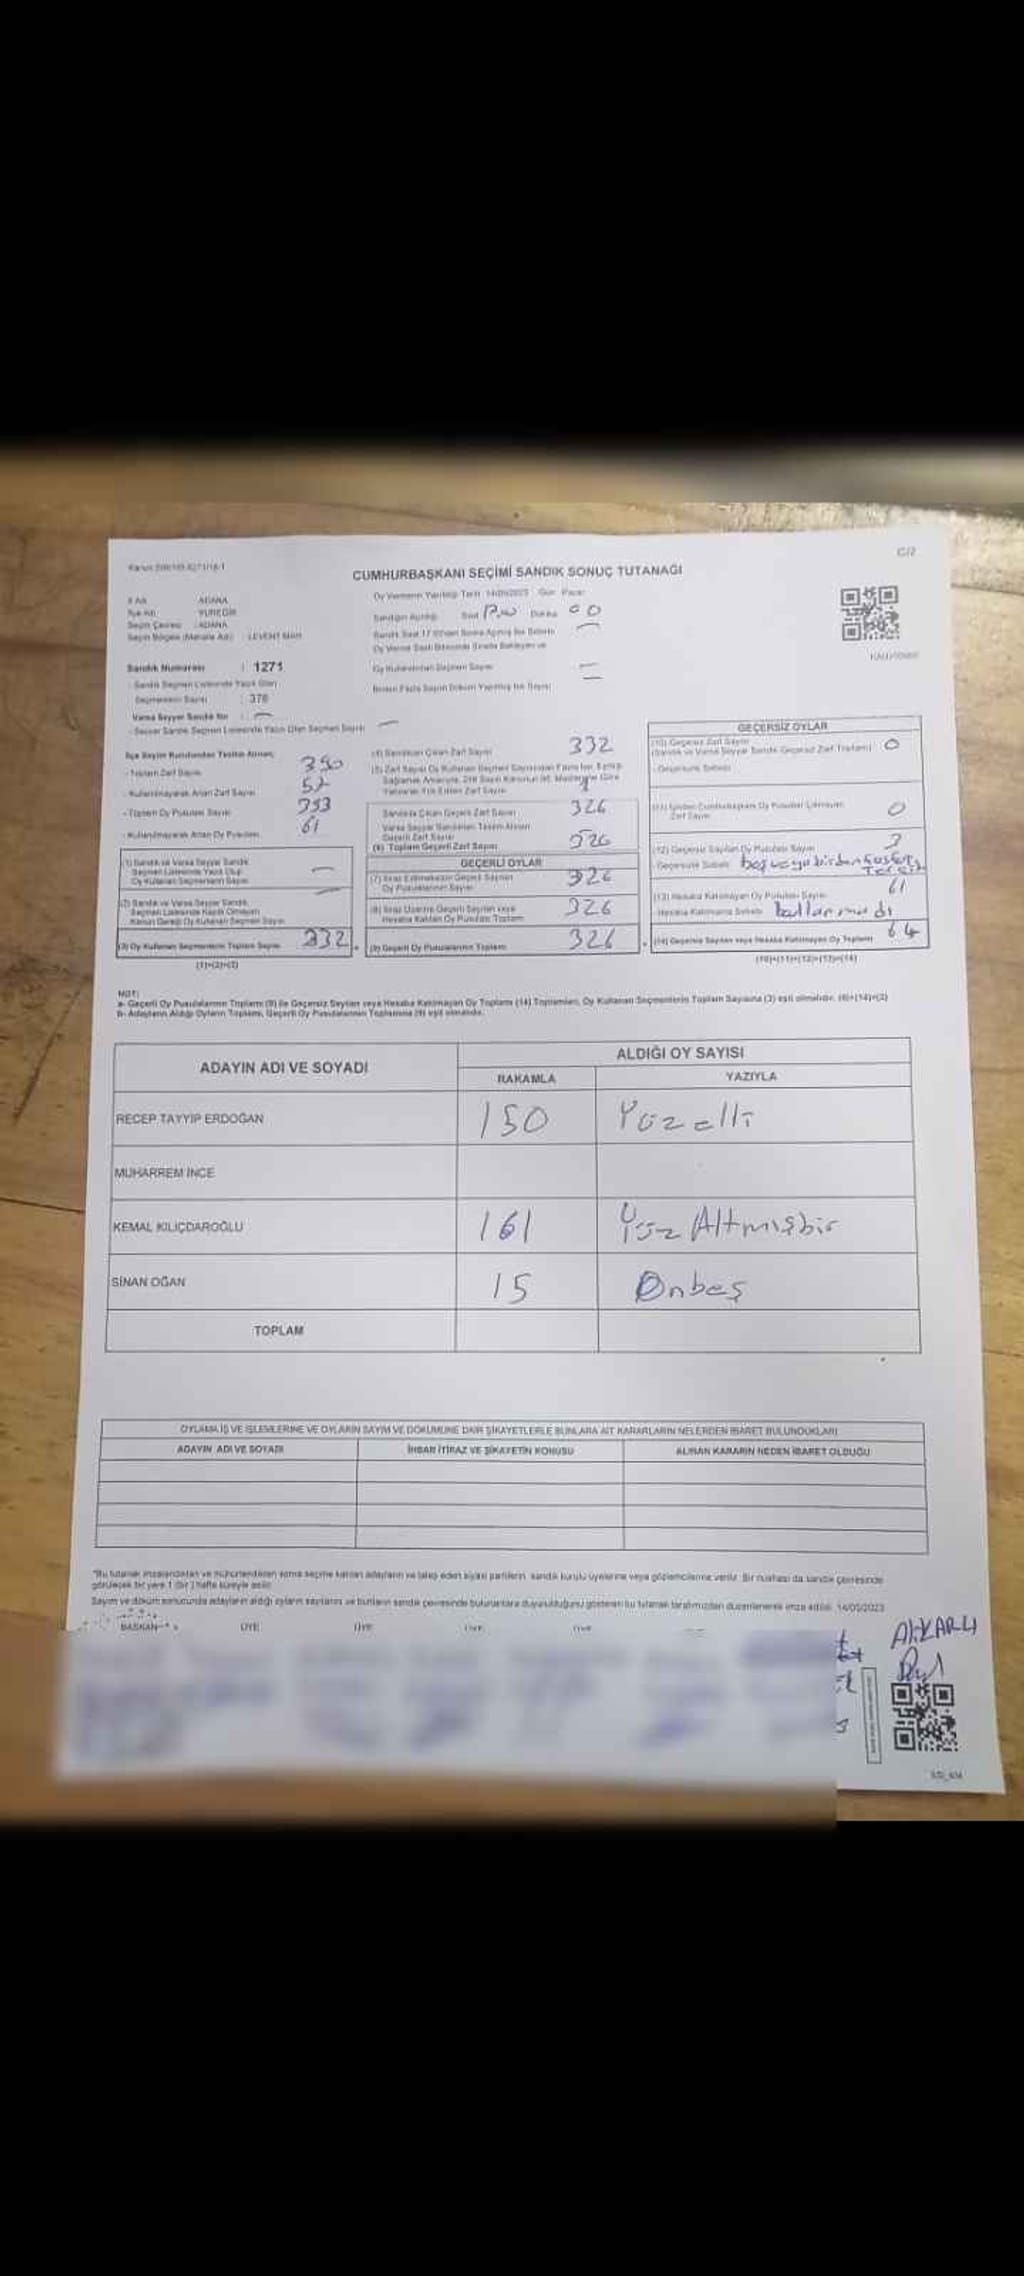 C/2
CUMHURBAŞKANI SEÇİMİ SANDIK SONUÇ TUTANAĞI
İl Adı : ADANA
İlçe Adı : YÜREĞİR
Seçim Çevresi : ADANA
Seçim Bölgesi (Mahalle Adı) : LEVENT MAH.
Oy Vermenin Yapıldığı Tarih 14/05/2023 Gün Pazar
Sandığın Açıldığı Saat Dakika 00
Sandık Numarası : 1271
- Sandık Seçmen Listesinde Yazılı Olan
Seçmenlerin Sayısı : 376
Varsa Seyyar Sandık No : —
- Seyyar Sandık Seçmen Listesinde Yazılı Olan Seçmen Sayısı —
Oy Kullandırılan Seçmen Sayısı
Birden Fazla Sayım Döküm Yapılmış İse Sayısı
İlçe Seçim Kurulundan Teslim Alınan;
- Toplam Zarf Sayısı 390
- Kullanılmayarak Artan Zarf Sayısı
- Toplam Oy Pusulası Sayısı 393
- Kullanılmayarak Artan Oy Pusulası 61
(1) Sandık ve Varsa Seyyar Sandık
Seçmen Listesinde Yazılı Olup
Oy Kullanan Seçmenlerin Sayısı —
(2) Sandık ve Varsa Seyyar Sandık
Seçmen Listesinde Kayıtlı Olmayan
Kanun Gereği Oy Kullanan Seçmen Sayısı —
(3) Oy Kullanan Seçmenlerin Toplam Sayısı 332
(1)+(2)=(3)
(4) Sandıktan Çıkan Zarf Sayısı 332
Sandıkta Çıkan Geçerli Zarf Sayısı 326
Varsa Seyyar Sandıktan Teslim Alınan
Geçerli Zarf Sayısı
(6) Toplam Geçerli Zarf Sayısı 326
GEÇERLİ OYLAR
(7) İtiraz Edilmeksizin Geçerli Sayılan
Oy Pusulalarının Sayısı 326
(8) İtiraz Üzerine Geçerli Sayılan veya
Hesaba Katılan Oy Pusulası Toplamı 326
(9) Geçerli Oy Pusulalarının Toplamı 326
GEÇERSİZ OYLAR
(10) Geçersiz Zarf Sayısı
(Sandık ve Varsa Seyyar Sandık Geçersiz Zarf Toplamı) 0
- Geçersizlik Sebebi
(11) İçinden Cumhurbaşkanı Oy Pusulası Çıkmayan
Zarf Sayısı 0
(12) Geçersiz Sayılan Oy Pusulası Sayısı 3
- Geçersizlik Sebebi boş veya birden fazla Tercih
(13) Hesaba Katılmayan Oy Pusulası Sayısı 61
Hesaba Katılmama Sebebi kullanmadı
(14) Geçersiz Sayılan veya Hesaba Katılmayan Oy Toplamı 64
(10)+(11)+(12)+(13)=(14)
NOT:
a- Geçerli Oy Pusulalarının Toplamı (9) ile Geçersiz Sayılan veya Hesaba Katılmayan Oy Toplamı (14) Toplamları, Oy Kullanan Seçmenlerin Toplam Sayısına (3) eşit olmalıdır. (9)+(14)=(3)
b- Adayların Aldığı Oyların Toplamı, Geçerli Oy Pusulalarının Toplamına (9) eşit olmalıdır.
ADAYIN ADI VE SOYADI ALDIĞI OY SAYISI
RAKAMLA YAZIYLA
RECEP TAYYİP ERDOĞAN 150 Yüzelli
MUHARREM İNCE
KEMAL KILIÇDAROĞLU 161 Yüz Altmışbir
SİNAN OĞAN 15 Onbeş
TOPLAM
OYLAMA İŞ VE İŞLEMLERİNE VE OYLARIN SAYIM VE DÖKÜMÜNE DAİR ŞİKAYETLERLE BUNLARA AİT KARARLARIN NELERDEN İBARET BULUNDUKLARI
ADAYIN ADI VE SOYADI İHBAR İTİRAZ VE ŞİKAYETİN KONUSU ALINAN KARARIN NEDEN İBARET OLDUĞU
*Bu tutanak imzalandıktan ve mühürlendikten sonra seçime katılan adayların ve talep eden siyasi partilerin, sandık kurulu üyelerine veya gözlemcilerine verilir. Bir nushası da sandık çevresinde
görülecek bir yere 1 (bir) hafta süreyle asılır.
Sayım ve döküm sonucunda adayların aldığı oyların sayılarını ve bunların sandık çevresinde bulunanlara duyurulduğunu gösteren bu tutanak tarafımızdan düzenlenerek imza edildi. 14/05/2023
BAŞKAN ÜYE ÜYE ÜYE ÜYE
Ali KARLI